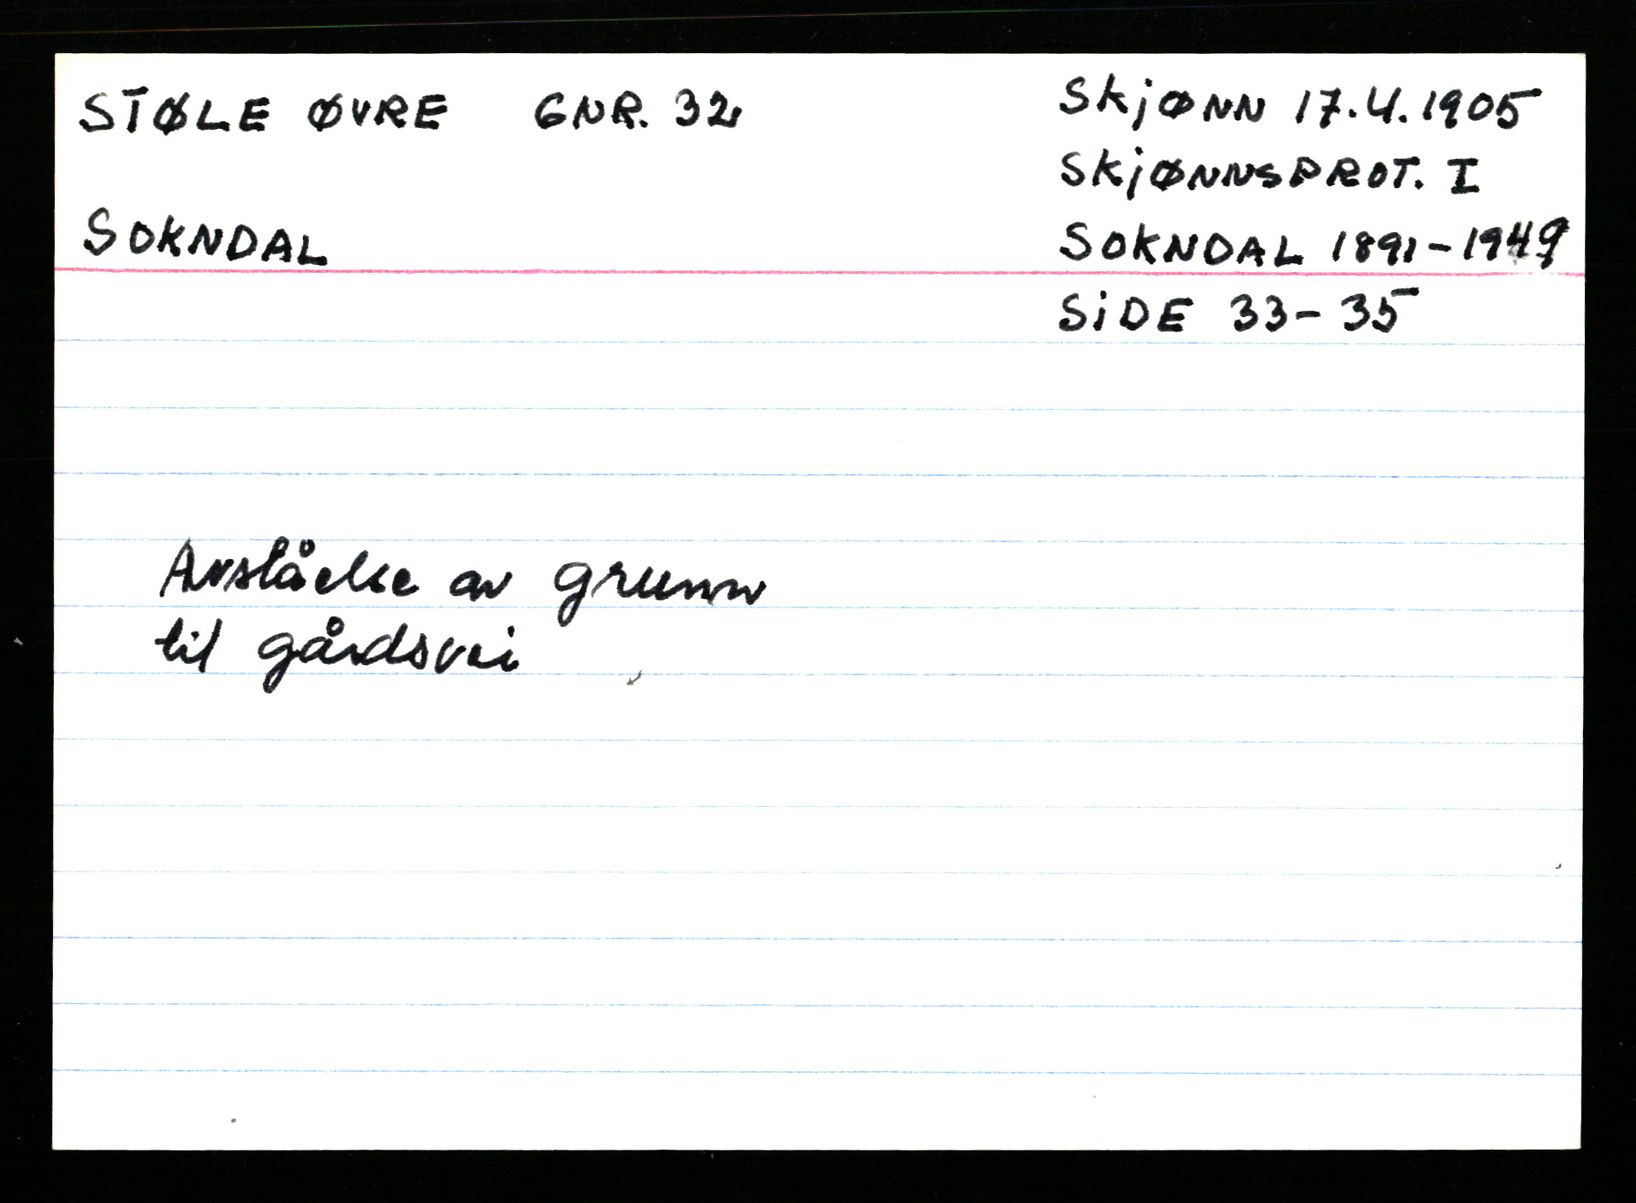 STØLE ØVRE GNR. 32
SOKNDAL
SKJØNN 17.4.1905
SKJØNNSPROT. I
SOKNDAL 1891-1949
SIDE 33-35
Avståelse av grunn
til gårdsvei